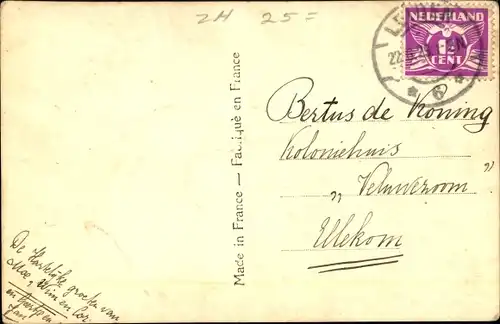 ZH 25=
NEDERLAND
1½
CENT
22
6
Made in France — Fabriqué en France
Bertus de Koning
Koloniehuis
„ Veluwezoom "
Ellekom
De Hartelijke groeten van
Moe, Wim en Cor
en
Jan